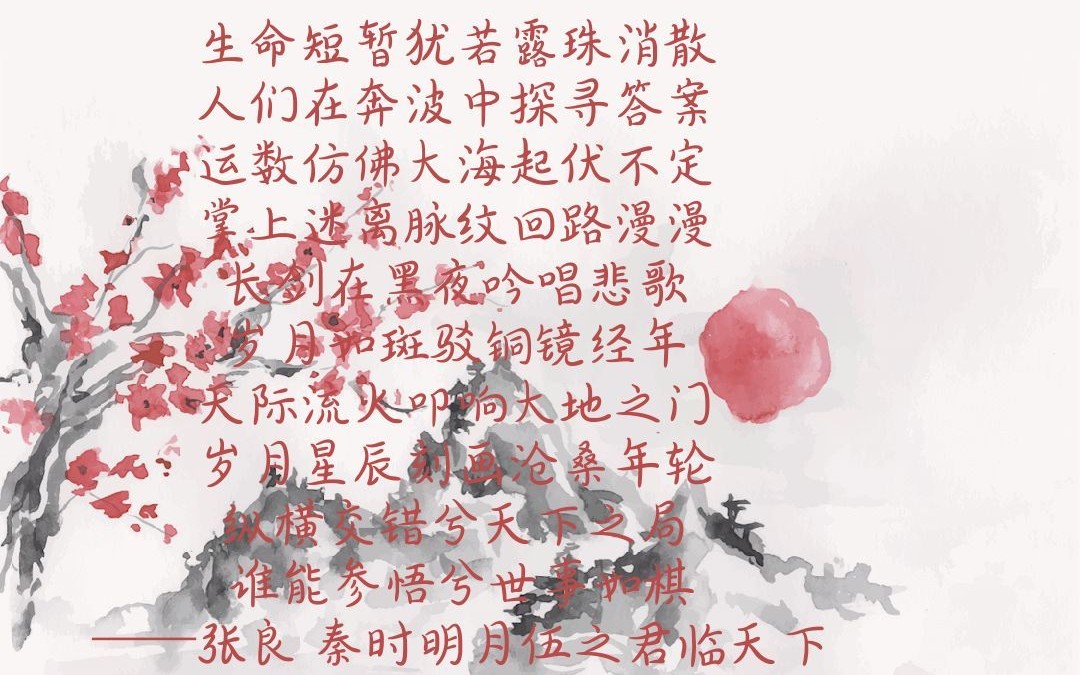 生命短暂犹若露珠消散
人们在奔波中探寻答案
运数仿佛大海起伏不定
掌上迷离脉纹回路漫漫
长剑在黑夜吟唱悲歌
岁月如斑驳铜镜经年
天际流火叩响大地之门
岁月星辰刻画沧桑年轮
纵横交错兮天下之局
谁能参悟兮世事如棋
——张良 秦时明月伍之君临天下